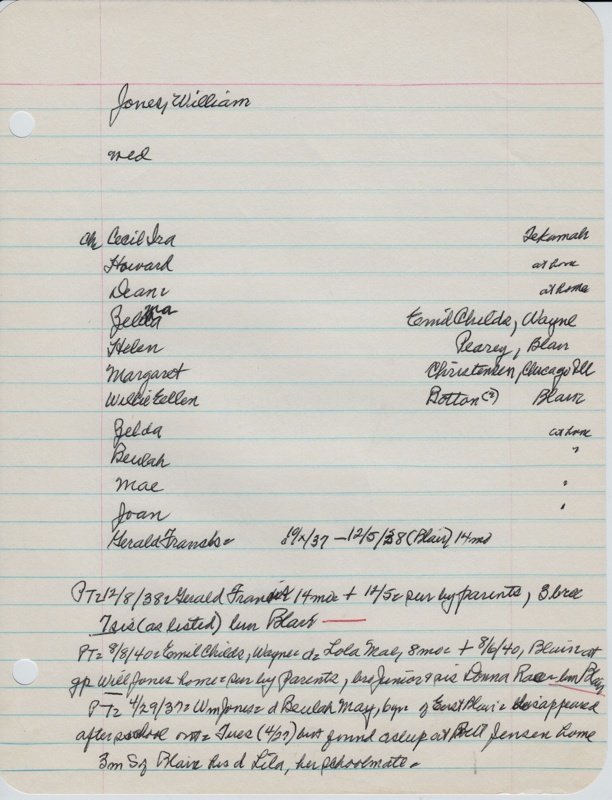 Jones, William
med
ch Cecil Ira Tekamah
Howard at home
Deane at home
Zelda Ma Emil Childs, Wayne
Helen Pearey, Blair
Margaret Christensen, Chicago Ill
Willie Eellen Botton (?) Blair
Zelda at home
Beulah "
Mae "
Joan "
Gerald Francis= /37 – 12/5/38 (Blair) 14 mo
PT= 12/8/38= Gerald Francis 14 mo= + 12/5= sur by parents, 3 bro &
7 sis (as listed) bur Blair
PT= 8/8/40= Emil Childs, Wayne= d= Lola Mae, 8 mo= + 8/6/40, Blair at
gp Will Jones home= sur by parents, bro Junior & sis Donna Rae= bur Blair
PT= 4/29/37= Wm Jones= d Beulah May, 6 yr= of East Blair= disappeared
after school on = Tues (4/27) but found asleep at Bill Jensen home
3 m S of Blair his d Lila, her schoolmate=